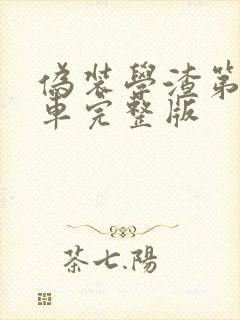 偽裝學渣第
車完整版
茶七.陽